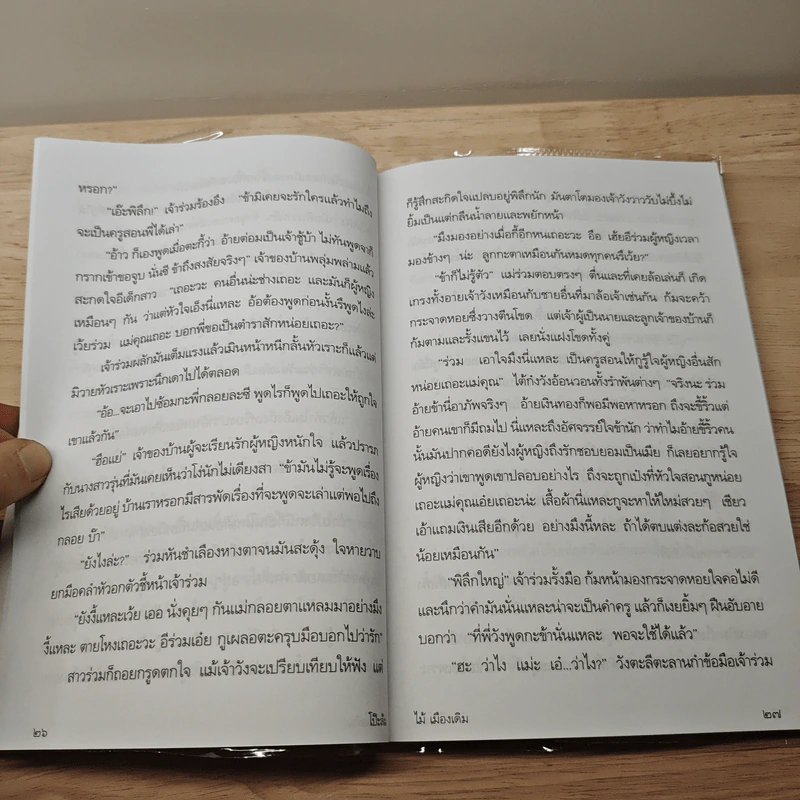 หรอก?”
“เอ๊ะพิลึก!” เจ้าร่วมร้องอึง “ข้ามิเคยจะรักใครแล้วทำไมถึง
จะเป็นครูสอนพี่ได้เล่า”
“อ้าว ก็เองพูดเมื่อตะกี้ว่า อ้ายต่อมเป็นเจ้าชู้บ้า ไม่ทันพูดจาก็
กรากเข้าขอจูบ นั่นซี ข้าถึงสงสัยจริงๆ” เจ้าของบ้านพลุ่มพล่ามแล้ว
สะกดใจอีเด็กสาว “เถอะวะ คนอื่นน่ะช่างเถอะ และมันก็ผู้หญิง
เหมือนๆ กัน ว่าแต่หัวใจเอ็งนี่แหละ อ้อต้องพูดก่อนงั้นรึพูดไงล่ะ
เว้ยร่วม แม่คุณเถอะ บอกพี่ขอเป็นตำราสักหน่อยเถอะ?”
เจ้าร่วมผลักมันเต็มแรงแล้วเมินหน้าหนีกลั้นหัวเราะก็แล้วแต่
มิวายหัวเราะเพราะนึกเดาไปได้ตลอด
“อ้อ...จะเอาไปซ้อมกะพี่กลอยละซี พูดไรก็พูดไปเถอะให้ถูกใจ
เขาแล้วกัน”
“ฮือแย่” เจ้าของบ้านผู้จะเรียนรักผู้หญิงหนักใจ แล้วปรารภ
กับนางสาวรุ่นที่มันเคยเห็นว่าโง่นักไม่เดียงสา “ข้ามันไม่รู้จะพูดเรื่อง
ไรเสียด้วยอยู่ บ้านเราหรอกมีสารพัดเรื่องที่จะพูดจะเล่าแต่พอไปถึง
กลอย บ๊า”
“ยังไงล่ะ?” ร่วมหันชำเลืองหางตาจนมันสะดุ้ง ใจหายวาบ
ยกมือคลำหัวอกตัวชี้หน้าเจ้าร่วม
“ยังงี้แหละเว้ย เออ นั่งคุยๆ กันแม่กลอยตาแหลมมาอย่างมึง
งี้แหละ ตายโหงเถอะวะ อีร่วมเอ๋ย กูเผลอตะครุบมือบอกไปว่ารัก”
สาวร่วมก็ถอยกรูดตกใจ แม้เจ้าวังจะเปรียบเทียบให้ฟัง แต่
๒๖
ก็รู้สึกสะกิดใจแปลบอยู่พิลึกนัก มันตาโตมองเจ้าวังวาววับไม่บึ้งไม่
ยิ้มเป็นแต่กลืนน้ำลายและพยักหน้า
“มึงมองอย่างเมื่อกี้อีกหนเถอะวะ อือ เฮ้ยอีร่วมผู้หญิงเวลา
มองข้างๆ น่ะ ลูกกะตาเหมือนกันหมดทุกคนรึเว้ย?”
“ข้าก็ไม่รู้ตัว” แม่ร่วมตอบตรงๆ ตื่นและที่เคยล้อเล่นก็ เกิด
เกรงทั้งอายเจ้าวังเหมือนกับชายอื่นที่มาล้อเจ้าเช่นกัน ก้มจะคว้า
กระจาดหอยซึ่งวางตีนโขด แต่เจ้าผู้เป็นนายและลูกเจ้าของบ้านก็
ก้มตามและรั้งแขนไว้ เลยนั่งแฝงโขดทั้งคู่
“ร่วม เอาใจมึงนี่แหละ เป็นครูสอนให้กูรู้ใจผู้หญิงอื่นสัก
หน่อยเถอะแม่คุณ” ไต้ก๋งวังอ้อนวอนทั้งรำพันต่างๆ “จริงนะ ร่วม
อ้ายข้านี่อาภัพจริงๆ อ้ายเงินทองก็พอมีพอหาหรอก ถึงจะขี้ริ้วแต่
อ้ายคนเขาก็มีถมไป นี่แหละถึงอัศจรรย์ใจข้านัก ว่าทำไมอ้ายขี้ริ้วคน
นั้นมันปากคอดียังไงผู้หญิงถึงรักชอบยอมเป็นเมีย ก็เลยอยากรู้ใจ
ผู้หญิงว่าเขาพูดเขาปลอบอย่างไร ถึงจะถูกเป้งที่หัวใจสอนกูหน่อย
เถอะแม่คุณเอ๋ยเถอะน่ะ เสื้อผ้านี่แหละกูจะหาให้ใหม่สวยๆ เชียว
เอ้าแถมเงินเสียอีกด้วย อย่างมึงนี้หละ ถ้าได้ตบแต่งละก้อสวยใช่
น้อยเหมือนกัน”
“พิลึกใหญ่” เจ้าร่วมรั้งมือ ก้มหน้ามองกระจาดหอยใจคอไม่ดี
และนึกว่าคำมันนั่นแหละน่าจะเป็นคำครู แล้วก็เงยยิ้มๆ ฝืนอับอาย
บอกว่า “ที่พี่วังพูดกะข้านั่นแหละ พอจะใช้ได้แล้ว”
“ฮะ ว่าไง แม่ะ เอ๋...ว่าไง?” วังตะลีตะลานกำข้อมือเจ้าร่วม
ไม้ เมืองเดิม
๒๗